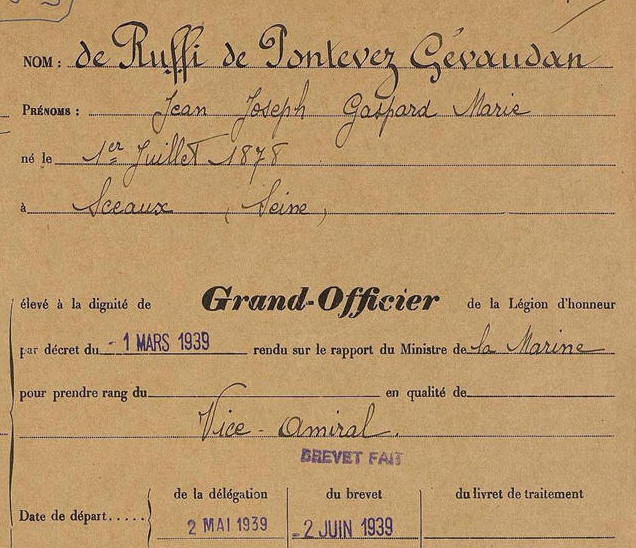 NOM : de Ruffi de Pontevez Gévaudan
PRÉNOMS : Jean Joseph Gaspard Marie
né le 1er Juillet 1878
à Sceaux (Seine)
élevé à la dignité de Grand-Officier de la Légion d'honneur
par décret du - 1 MARS 1939 rendu sur le rapport du Ministre de la Marine
pour prendre rang du en qualité de
Vice-amiral.
BREVET FAIT
de la délégation du brevet du livret de traitement
Date de départ..... 2 MAI 1939 - 2 JUIN 1939